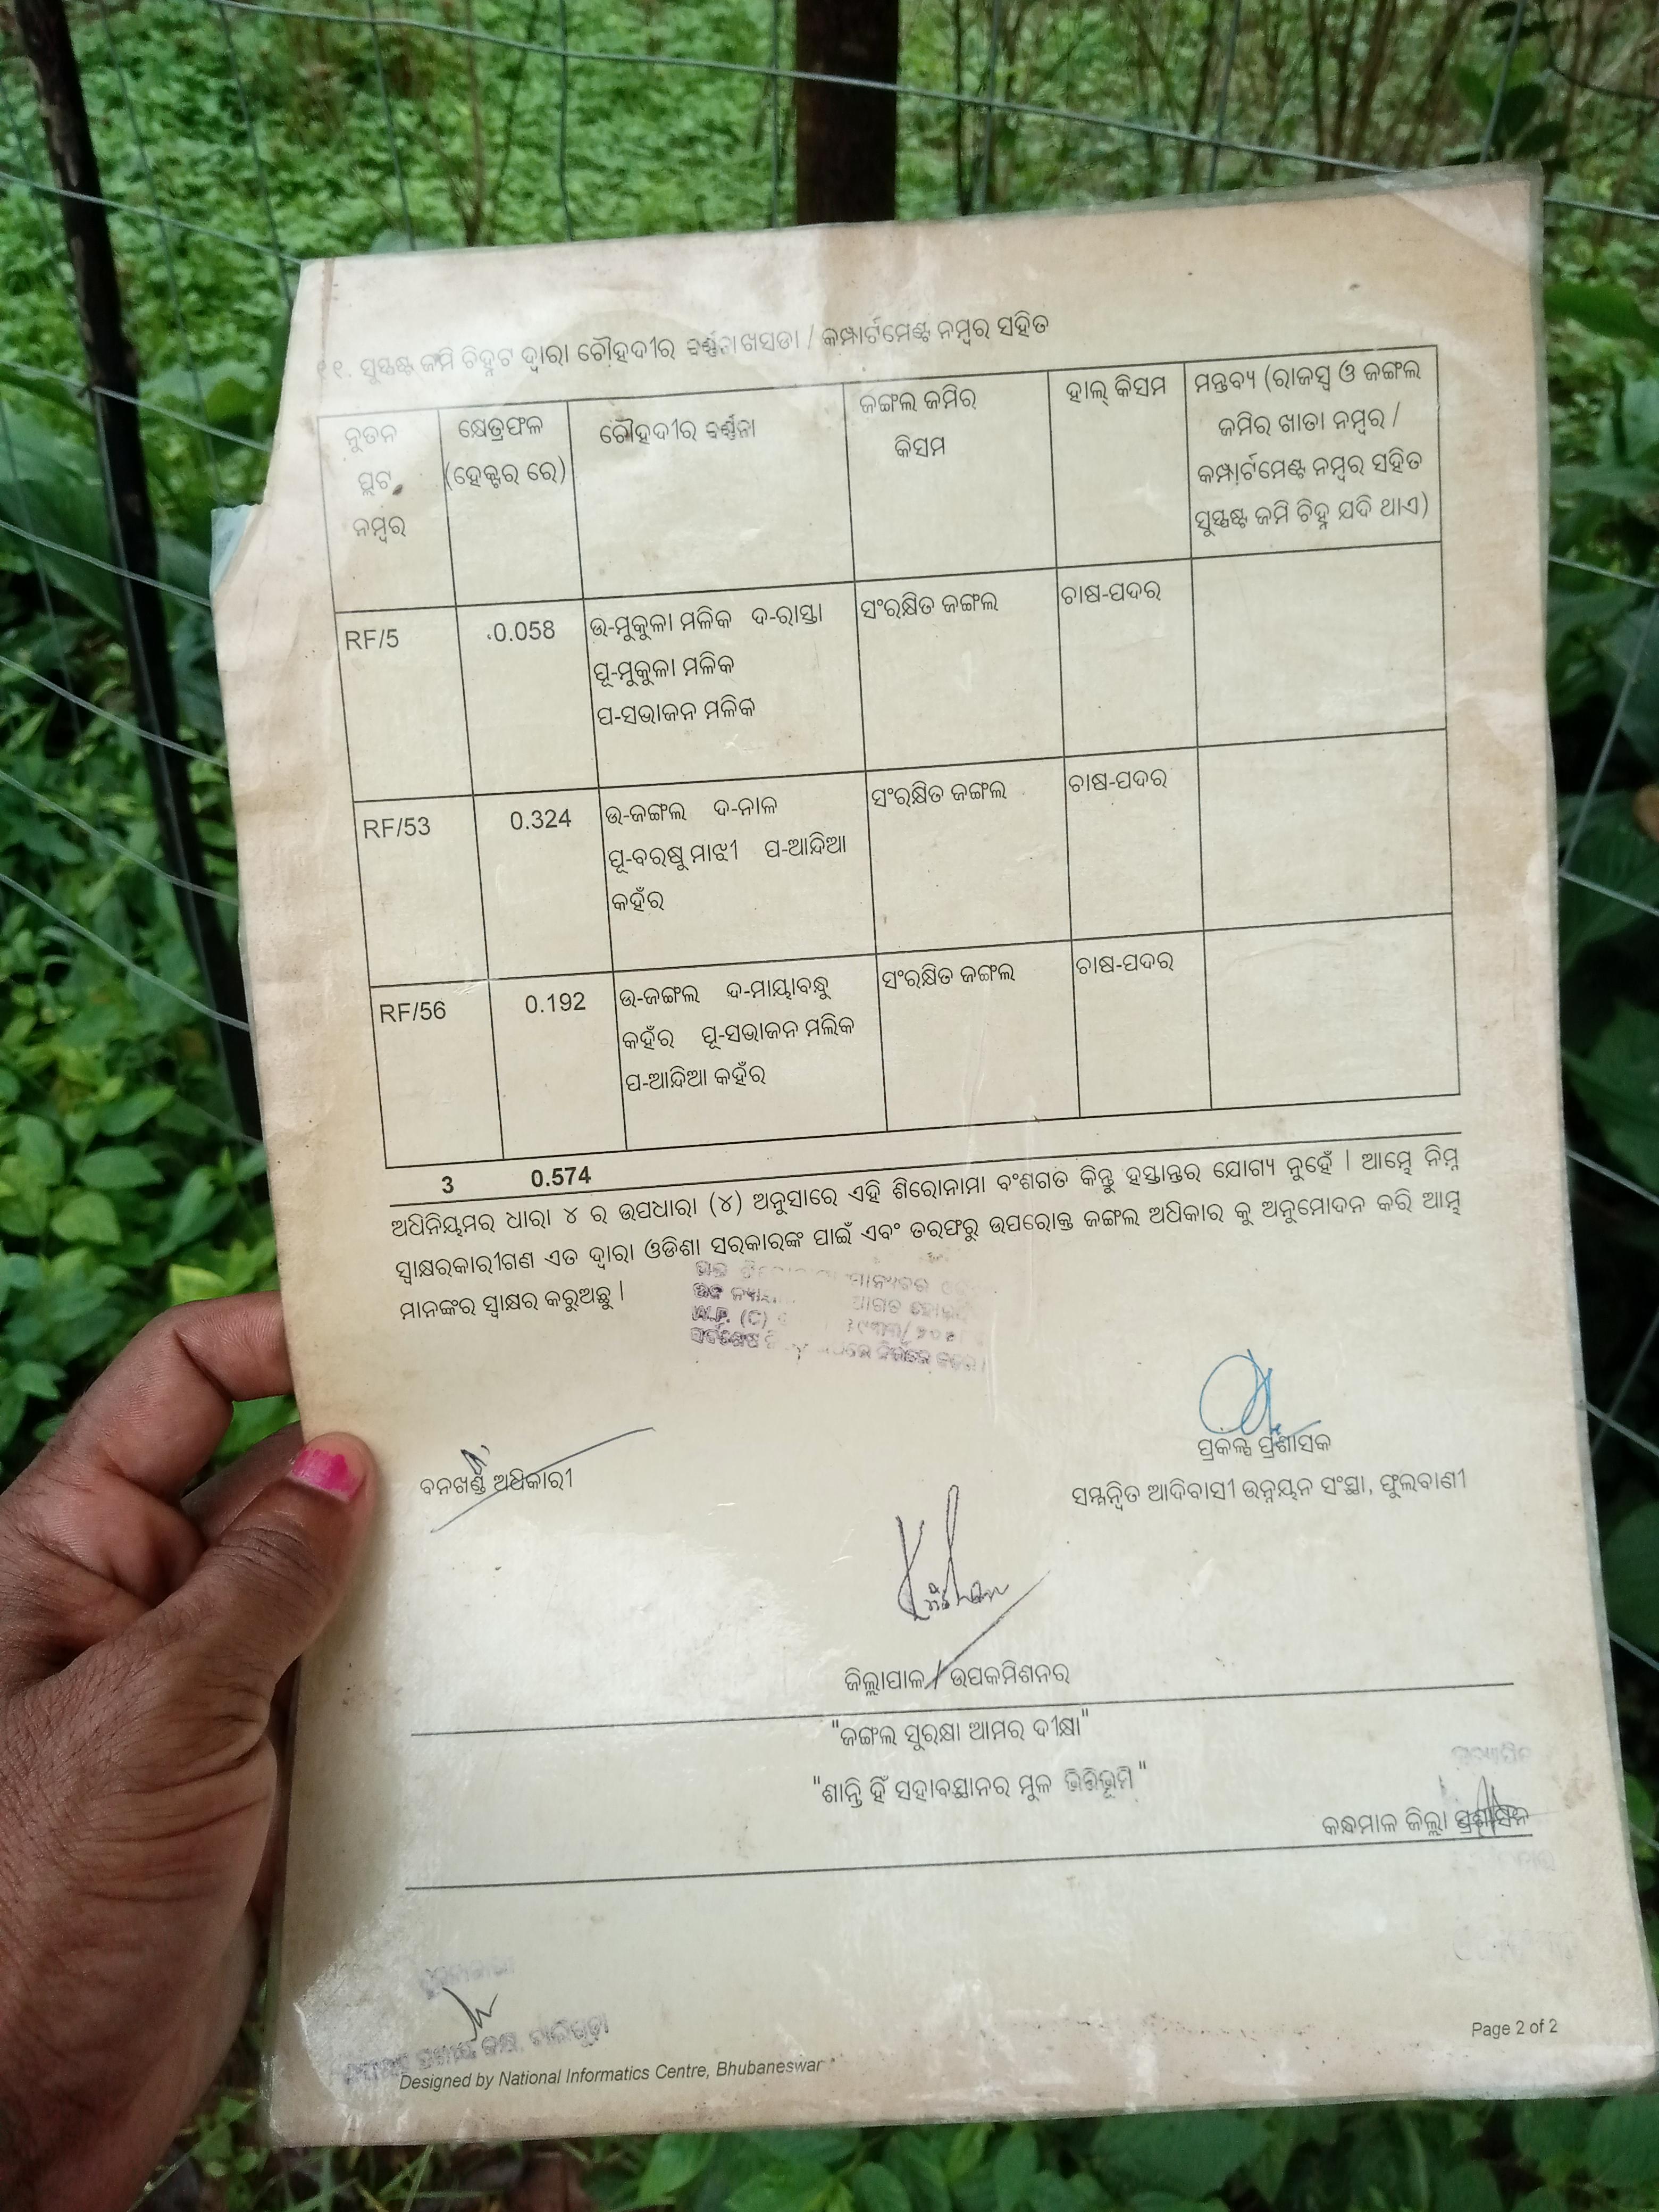 ୧୧. ସୁସ୍ପଷ୍ଟ ଜମି ଚିହ୍ନଟ ଦ୍ୱାରା ଚୌହଦୀର ବର୍ଣ୍ଣନା ଖସଡା / କମ୍ପାର୍ଟମେଣ୍ଟ ନମ୍ବର ସହିତ
ନୁତନ ପ୍ଲଟ ନମ୍ବର
କ୍ଷେତ୍ରଫଳ (ହେକ୍ଟର ରେ)
ଚୌହଦୀର ବର୍ଣ୍ଣନା
ଜଙ୍ଗଲ ଜମିର କିସମ
ହାଲ୍ କିସମ
ମନ୍ତବ୍ୟ (ରାଜସ୍ୱ ଓ ଜଙ୍ଗଲ
ଜମିର ଖାତା ନମ୍ବର /
କମ୍ପାର୍ଟମେଣ୍ଟ ନମ୍ବର ସହିତ
ସୁସ୍ପଷ୍ଟ ଜମି ଚିହ୍ନ ଯଦି ଥାଏ)
RF/5 0.058 ଉ-ମୁକୁଳା ମଳିକ ଦ-ରାସ୍ତା ସଂରକ୍ଷିତ ଜଙ୍ଗଲ ଚାଷ-ପଦର
ପୂ-ମୁକୁଳା ମଳିକ
ପ-ସଭାଜନ ମଳିକ
RF/53 0.324 ଉ-ଜଙ୍ଗଲ ଦ-ନାଳ ସଂରକ୍ଷିତ ଜଙ୍ଗଲ ଚାଷ-ପଦର
ପୂ-ବରଷୁ ମାଝୀ ପ-ଆନ୍ଦିଆ
କହଁର
RF/56 0.192 ଉ-ଜଙ୍ଗଲ ଦ-ମାୟାବନ୍ଧୁ ସଂରକ୍ଷିତ ଜଙ୍ଗଲ ଚାଷ-ପଦର
କହଁର ପୂ-ସଭାଜନ ମଲିକ
ପ-ଆନ୍ଦିଆ କହଁର
3 0.574
ଅଧିନିୟମର ଧାରା ୪ ର ଉପଧାରା (୪) ଅନୁସାରେ ଏହି ଶିରୋନାମା ବଂଶଗତ କିନ୍ତୁ ହସ୍ତାନ୍ତର ଯୋଗ୍ୟ ନୁହେଁ । ଆମ୍ଭେ ନିମ୍ନ
ସ୍ୱାକ୍ଷରକାରୀଗଣ ଏତ ଦ୍ୱାରା ଓଡିଶା ସରକାରଙ୍କ ପାଇଁ ଏବଂ ତରଫରୁ ଉପରୋକ୍ତ ଜଙ୍ଗଲ ଅଧିକାର କୁ ଅନୁମୋଦନ କରି ଆମ୍ଭ
ମାନଙ୍କର ସ୍ୱାକ୍ଷର କରୁଅଛୁ ।
ବନଖଣ୍ଡ ଅଧିକାରୀ
ପ୍ରକଳ୍ପ ପ୍ରଶାସକ
ସମ୍ମନ୍ୱିତ ଆଦିବାସୀ ଉନ୍ନୟନ ସଂସ୍ଥା, ଫୁଲବାଣୀ
ଜିଲ୍ଲାପାଳ / ଉପକମିଶନର
"ଜଙ୍ଗଲ ସୁରକ୍ଷା ଆମର ଦୀକ୍ଷା"
"ଶାନ୍ତି ହିଁ ସହାବସ୍ଥାନର ମୂଳ ଭିତ୍ତିଭୂମି"
କନ୍ଧମାଳ ଜିଲ୍ଲା ପ୍ରଶାସନ
Page 2 of 2
Designed by National Informatics Centre, Bhubaneswar